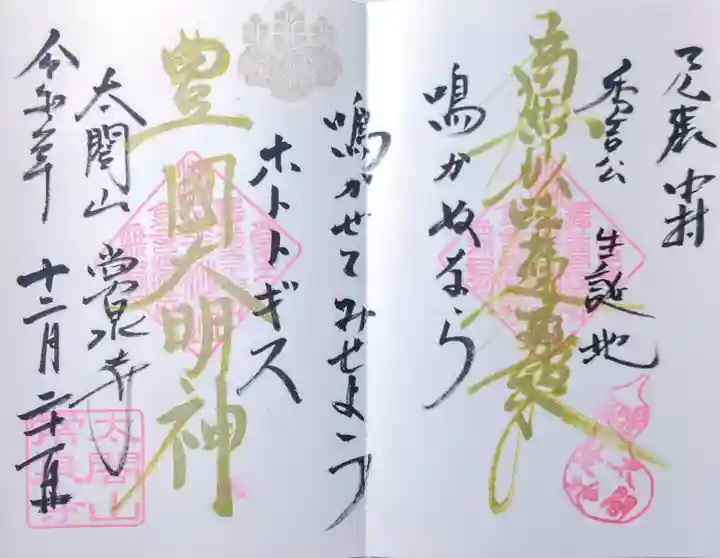 尾張中村
秀吉公 生誕地
南無妙法蓮華経
鳴かぬなら
鳴かせてみせよう
ホトトギス
豊國大明神
太閤山 常泉寺
令和元年 十二月 二十一日
太閤山
常泉寺